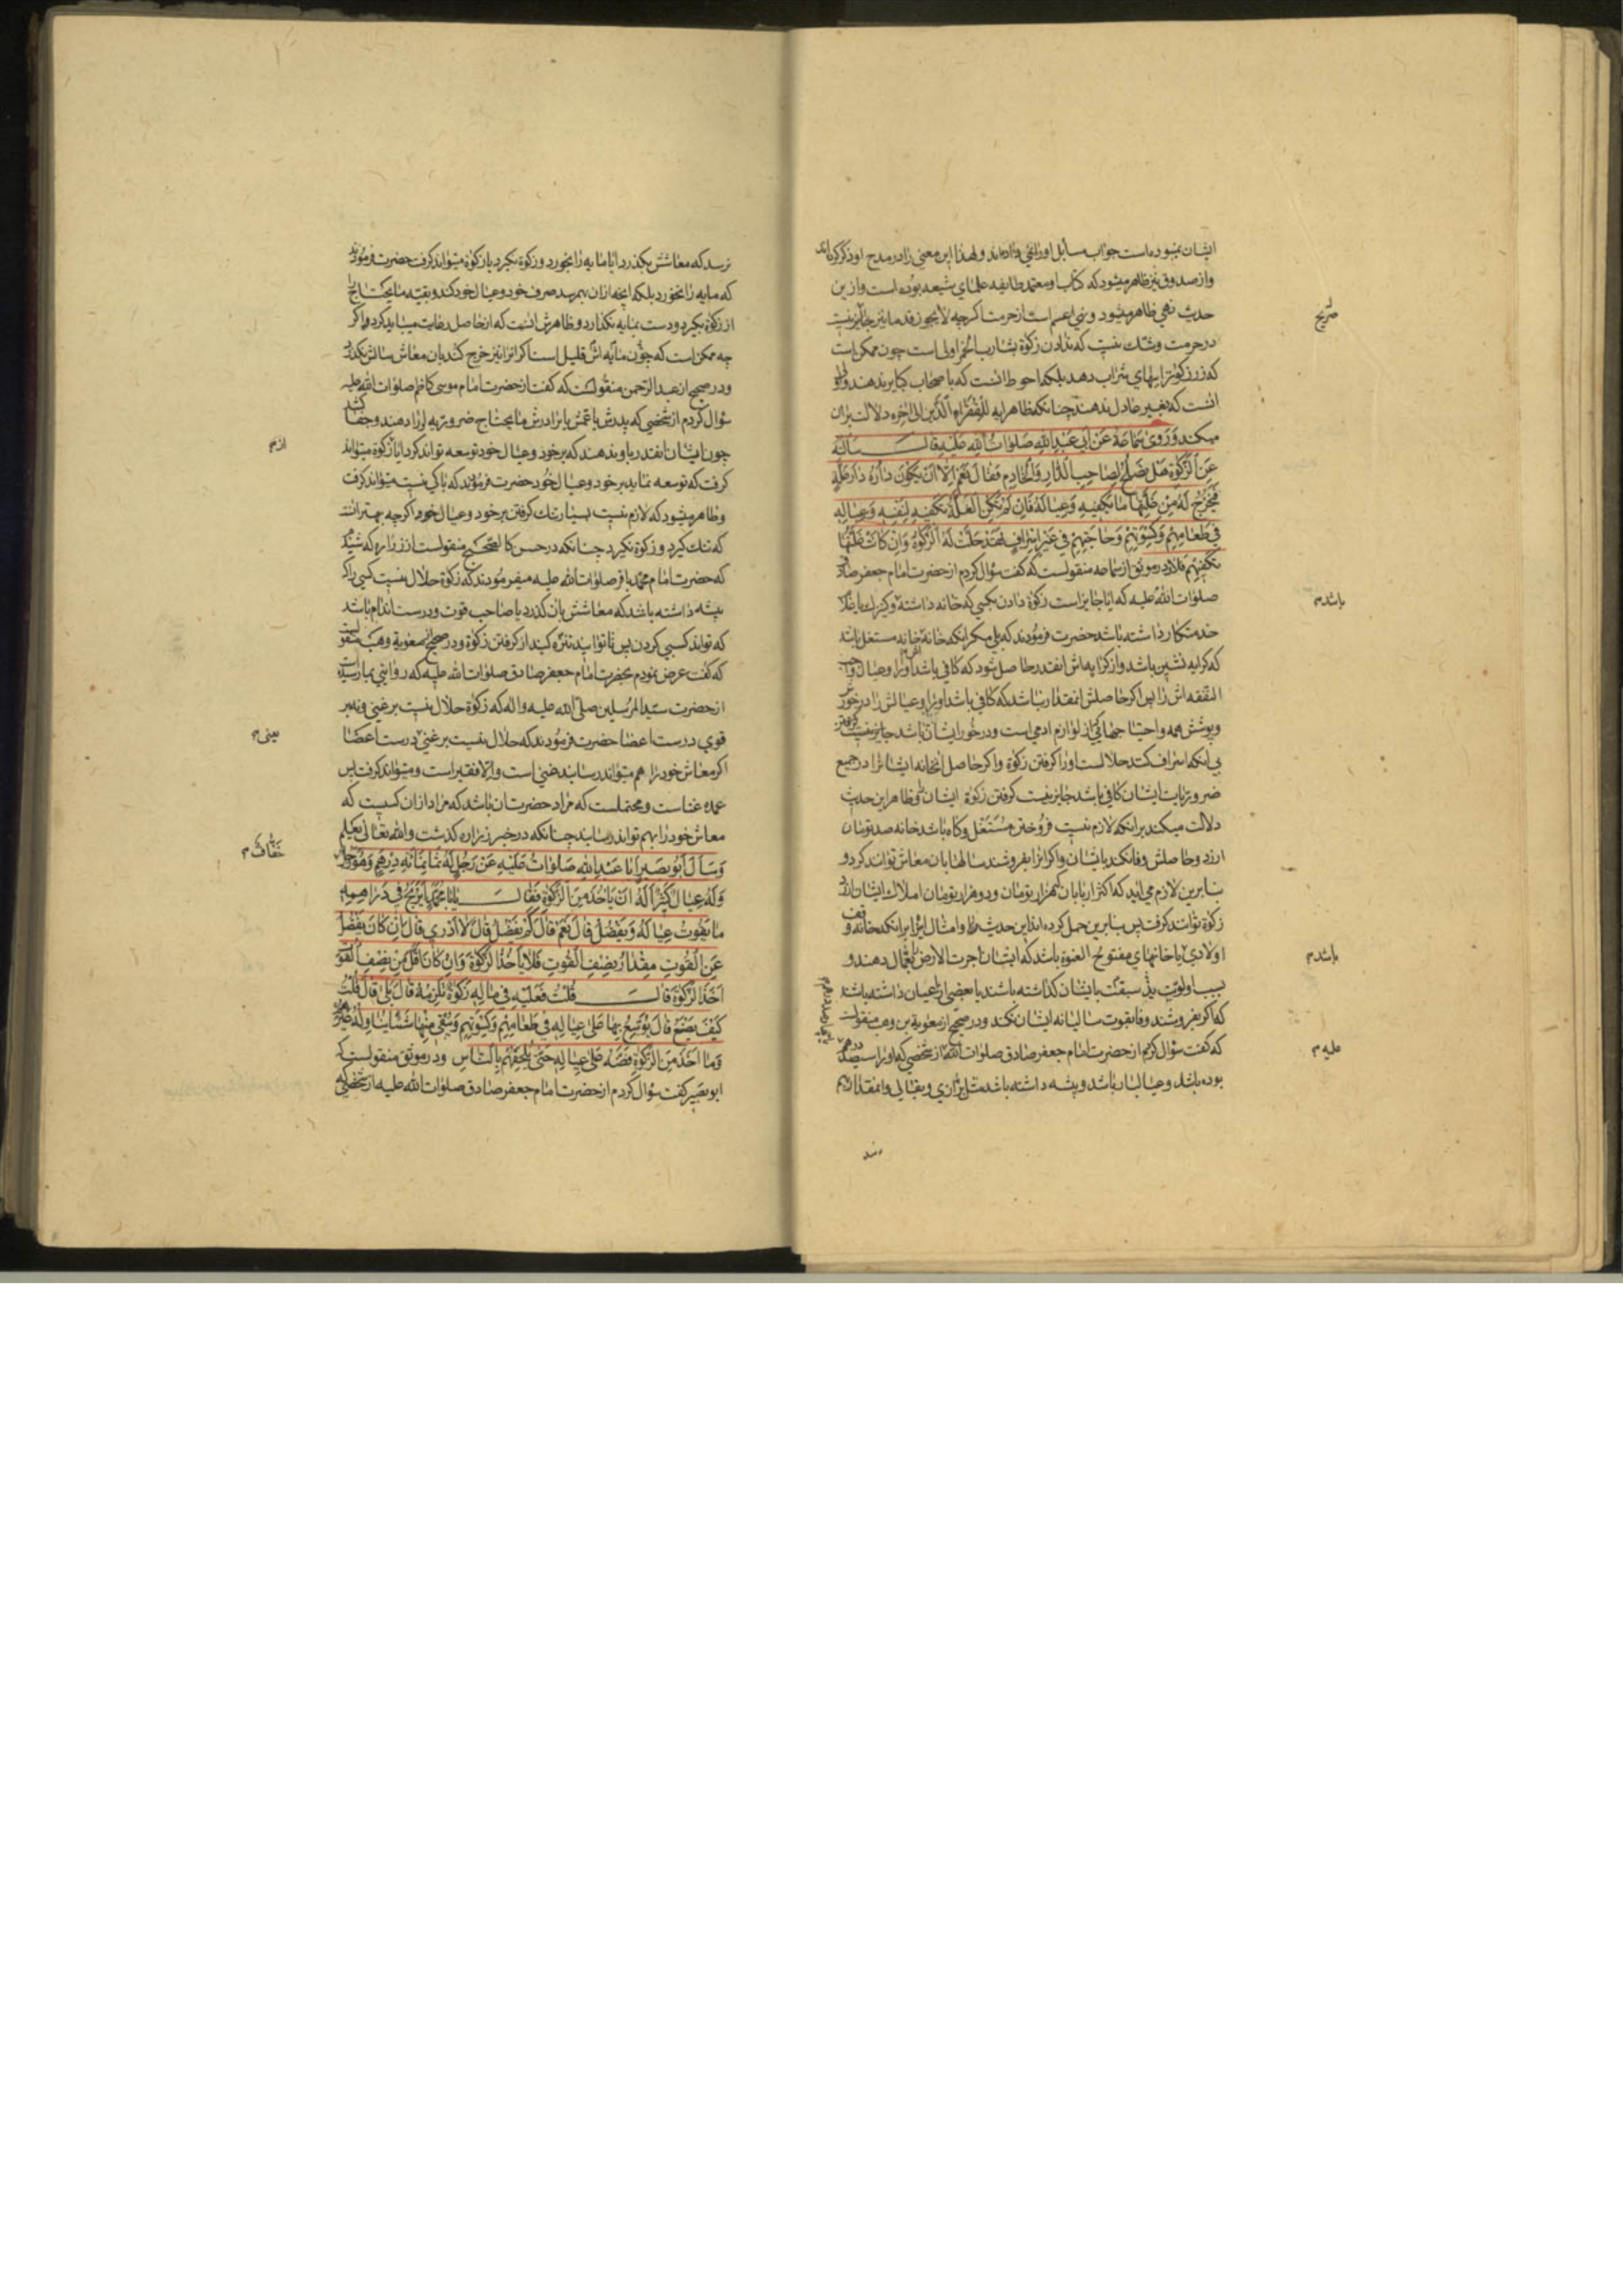 ایشان نمیبوده است جواب مسایل او را نمی داده اند و لهذا این معنی را در مدح او ذکر کرده اند
و از صدوق نیز ظاهر میشود که کتاب او معتمد طایفه علمای شیعه بوده است و ازین
حدیث نهی ظاهر میشود و نهی اعم است از حرمت اکرچه لا یجوز قدما نیز جایز نیست
در حرمت و شک نیست که ندادن زکوة بشارب الخمر اولی است چون ممکن است
که زر زکوة را ببهای شراب دهد بلکه احوط انست که باصحاب کبایر ندهند و اولی
انست که بغیر عادل ندهند چنانکه ظاهر ایه للفقراء الذین الی اخره دلالت بران
میکند وَرَوی سَمَاعَة عَنْ اَبی عَبْدِ اللهِ صَلَوَاتُ اللهِ عَلَیْهِ قالَ سَاَلتُهُ
عَنِ الزَّکوةِ هَل یَصْلُحُ لِصَاحِبِ الدَّارِ وَالْخَادِمِ فَقَالَ نَعَمْ اِلاّ اَنْ یَکُونَ دَارُهُ دَارَ غَلَّةٍ
فَیَخْرُجُ لَهُ مِنْ غَلَّتِهَا مَا یَکْفِیهِ وَعِیَالَهُ فَاِنْ لَمْ تَکُنِ الْغَلَّةُ تَکْفِیهِ لِنَفْسِهِ وَعِیَالِهِ
فِی طَعَامِهِمْ وَکِسْوَتِهِمْ وَحَاجَتِهِمْ فِی غَیْرِ اِسْرَافٍ فَقَدْ حَلَّتْ لَهُ الزَّکوةُ وَاِنْ کَانَتْ غَلَّتُهَا
تَکْفِیهِمْ فَلاَ و در موثق از سماعه منقولست که گفت سؤال کردم از حضرت امام جعفر صادق
صلوات الله علیه که ایا جایز است زکوة دادن بکسی که خانه داشته و کنیزک یا غلام
خدمتکار داشته باشد حضرت فرمودند که بلی مکر انکه خانه خانه مستغل باشد
که کرایه نشین باشد و از کرایه اش انقدر حاصل شود که کافی باشد او را و عیال واجب
النفقه اش را پس اکر حاصلش انمقدار نباشد که کافی باشد او را و عیالش را در خورش
و پوشش همه و احتیاجهائی که از لوازم ادمی است و در خور ایشان باشد
بی انکه اسراف کند حلالست او را کرفتن زکوة و اکر حاصل انخانه ایشانرا در جمیع
ضروریات ایشان کافی باشد جایز نیست کرفتن زکوة ایشان و ظاهر این حدیث
دلالت میکند بر انکه لازم نیست فروختن مستغل و کاه باشد خانه صد تومان
ارزد و حاصلش وفا نکند بایشان و اکر انرا بفروشند سالها بان معاش توانند کرد و
بنابرین لازم می اید که اکثر اربابان که هزار تومان و دو هزار تومان املاک ایشان ارزد
زکوة توانند کرفت پس بنابرین حمل کرده اند این حدیث را و امثال انرا بر انکه خانه وقف
اولادی یا خانهای مفتوح العنوة باشد که ایشان اجرت الارض بعمال دهند و
بسبب اولویت ید سبقت بایشان کذاشته باشند یا بعضی از اعیان داشته باشند
که اکر بفروشند وفا بقوت سالیانه ایشان نکند و در صحیح از معویة بن وهب منقولست
که گفت سؤال کردم از حضرت امام جعفر صادق صلوات الله از شخصی که او را سیصد درهم
بوده باشد و عیالبار باشد و پیشه داشته باشد مثل بزازی و بقالی و انمقدار بهم
صریح
باشد م
باشد م
علیه م
نرسد که معاشش بکذرد ایا مایه را بخورد و زکوة نکیرد یا زکوة میتواند کرفت حضرت فرمودند
که مایه را نخورد بلکه انچه ازان بهم رسد صرف خود و عیال خود کند و بقیه ما یحتاج را
از زکوة بکیرد و دست بمایه نکذارد و ظاهرش انست که از حاصل رعایت میباید کرد و اکر
چه ممکن است که چون مایه اش قلیل است اکر انرا نیز خرج کند بان معاش سالش نکذرد
و در صحیح از عبدالرحمن منقولست که گفت از حضرت امام موسی کاظم صلوات الله علیه
سؤال کردم از شخصی که پدرش یا عمش یا برادرش ما یحتاج ضروریه او را دهند و جفا کشد
چون ایشان انقدر باو ندهند که بر خود و عیال خود توسعه تواند کرد ایا از زکوة میتواند
کرفت که توسعه نماید بر خود و عیال خود حضرت فرمودند که باکی نیست میتواند کرفت
و ظاهر میشود که لازم نیست بسیار تنک کرفتن بر خود و عیال خود اکرچه بهتر انست
که تنک کیرد و زکوة نکیرد چنانکه در حسن کالصحیح منقولست از زراره که شنید
که حضرت امام محمد باقر صلوات الله علیه میفرمودند که زکوة حلال نیست کسی را که
پیشه داشته باشد که معاشش بان کذرد یا صاحب قوت و درست اندام باشد
که تواند کسبی کردن پس تا توانید تنزه کنید از کرفتن زکوة و در صحیح از معویة وهب منقولست
که گفت عرض نمودم بحضرت امام جعفر صادق صلوات الله علیه که روایتی بما رسیده است
از حضرت سید المرسلین صلی الله علیه واله که زکوة حلال نیست بر غنی و نه بر
قوی درست اعضا حضرت فرمودند که حلال نیست بر غنی درست اعضا
اکر معاش خود را هم میتواند رسانید غنی است والا فقیر است و میتواند کرفت پس
عمده غناست و محتملست که مراد حضرت ان باشد که مراد ازان کسیست که
معاش خود را بهم تواند رسانید چنانکه در خبر زراره کذشت والله تعالی یعلم
وَسَاَلَ اَبُو بَصِیر اَبَا عَبْدِ اللهِ صَلَوَاتُ عَلَیْهِ عَنْ رَجُلٍ لَهُ ثَمَانُمِائَةِ دِرْهَمٍ وَهُوَ رَجُلٌ
وَلَهُ عِیَالٌ کَثِیرٌ اَلَهُ اَنْ یَاْخُذَ مِنَ الزَّکوةِ فَقَالَ یَابَا مُحَمَّدٍ اَیَرْبَحُ فِی دَرَاهِمِهِ
مَا یَقُوتُ عِیَالَهُ وَیَفْضُلُ قالَ نَعَمْ قالَ کَمْ یَفْضُلُ قالَ لاَ اَدْرِی قالَ اِنْ کَانَ یَفْضُلُ
عَنِ الْقُوتِ مِقْدَارُ نِصْفِ الْقُوتِ فَلاَ یَاْخُذُ الزَّکوةَ وَاِنْ کَانَ اَقَلَّ مِنْ نِصْفِ الْقُوتِ
اَخَذَ الزَّکوةَ قالَ قُلْتُ فَعَلَیْهِ فِی مَالِهِ زَکوةٌ تَلْزَمُهُ قالَ بَلَی قالَ قُلْتُ
کَیْفَ یَصْنَعُ قالَ یُوَسِّعُ بِهَا عَلَی عِیَالِهِ فِی طَعَامِهِمْ وَکِسْوَتِهِمْ وَیُبْقِی مِنْهَا شَیْئًا یُنَاوِلُهُ غَیْرَهُمْ
وَمَا اَخَذَ مِنَ الزَّکوةِ فَضَّهُ عَلَی عِیَالِهِ حَتَّی یُلْحِقَهُمْ بِالنَّاسِ و در موثق منقولست که
ابو بصیر گفت سؤال کردم از حضرت امام جعفر صادق صلوات الله علیه از شخصی که
از م
یعنی م
خَفَّافٌ م